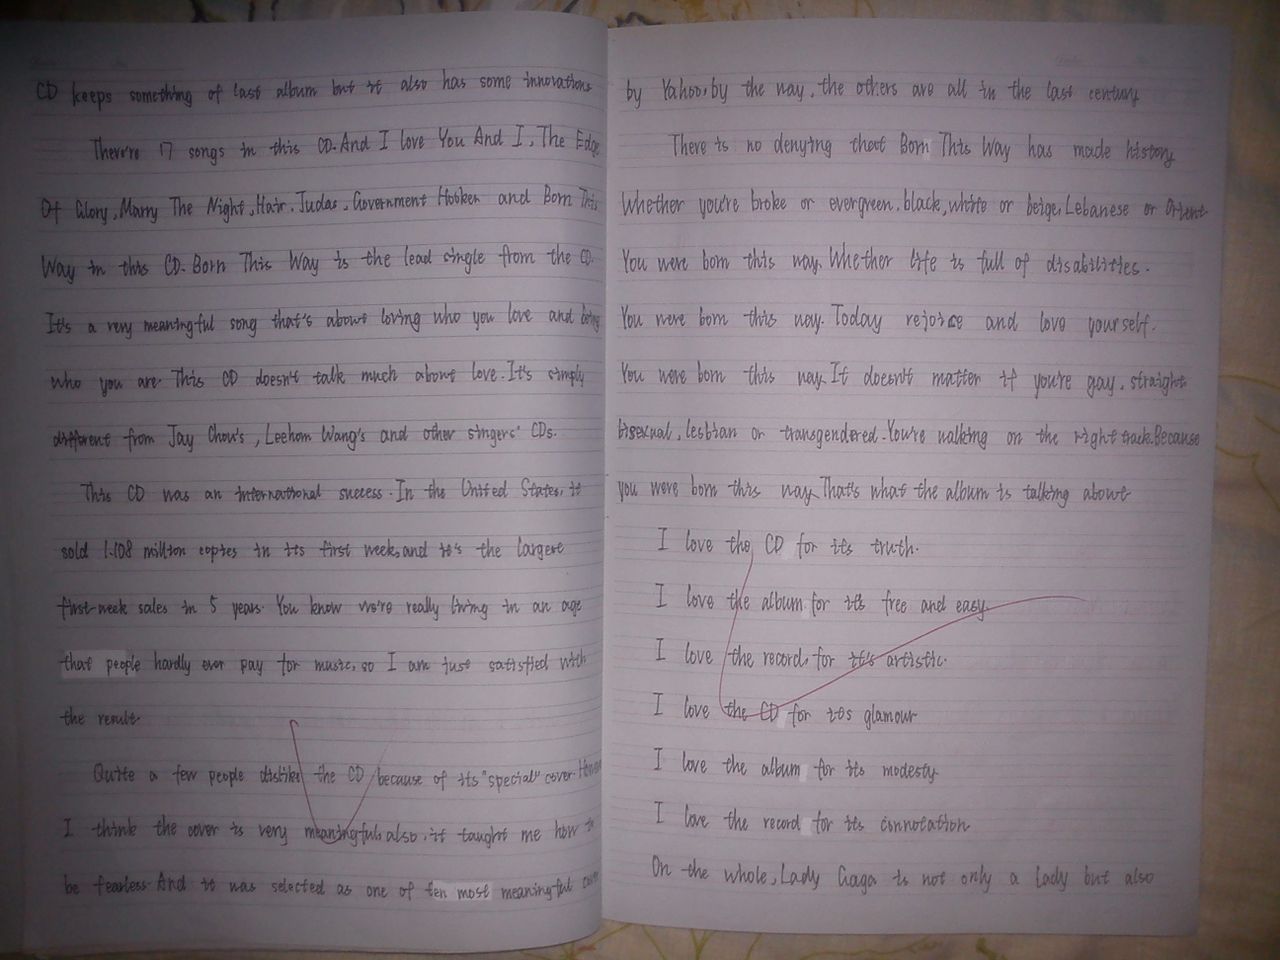 CD keeps something of last album but it also has some innovations
There're 17 songs in this CD. And I love You And I, The Edge
Of Glory, Marry The Night, Hair, Judas, Government Hooker and Born This
Way in this CD. Born This Way is the lead single from the CD.
It's a very meaningful song that's about loving who you love and being
who you are. This CD doesn't talk much about love. It's simply
different from Jay Chou's, Leehom Wang's and other singers' CDs.
This CD was an international success. In the United States, it
sold 1.108 million copies in its first week, and it's the largest
first-week sales in 5 years. You know we're really living in an age
that people hardly ever pay for music, so I am just satisfied with
the result.
Quite a few people dislike the CD because of its "special" cover.
I think the cover is very meaningful, also, it taught me how to
be fearless. And it was selected as one of ten most meaningful
by Yahoo, by the way, the others are all in the last century
There is no denying that Born This Way has made history
Whether you're broke or evergreen, black, white or beige, Lebanese or Orient
You were born this way. Whether life is full of disabilities.
You were born this way. Today rejoice and love yourself.
You were born this way. It doesn't matter if you're gay, straight
bisexual, lesbian or transgendered. You're walking on the right track. Because
you were born this way. That's what the album is talking about
I love the CD for its truth.
I love the album for its free and easy.
I love the record for it's artistic.
I love the CD for its glamour
I love the album for its modesty
I love the record for its connotation
On the whole, Lady Gaga is not only a lady but also